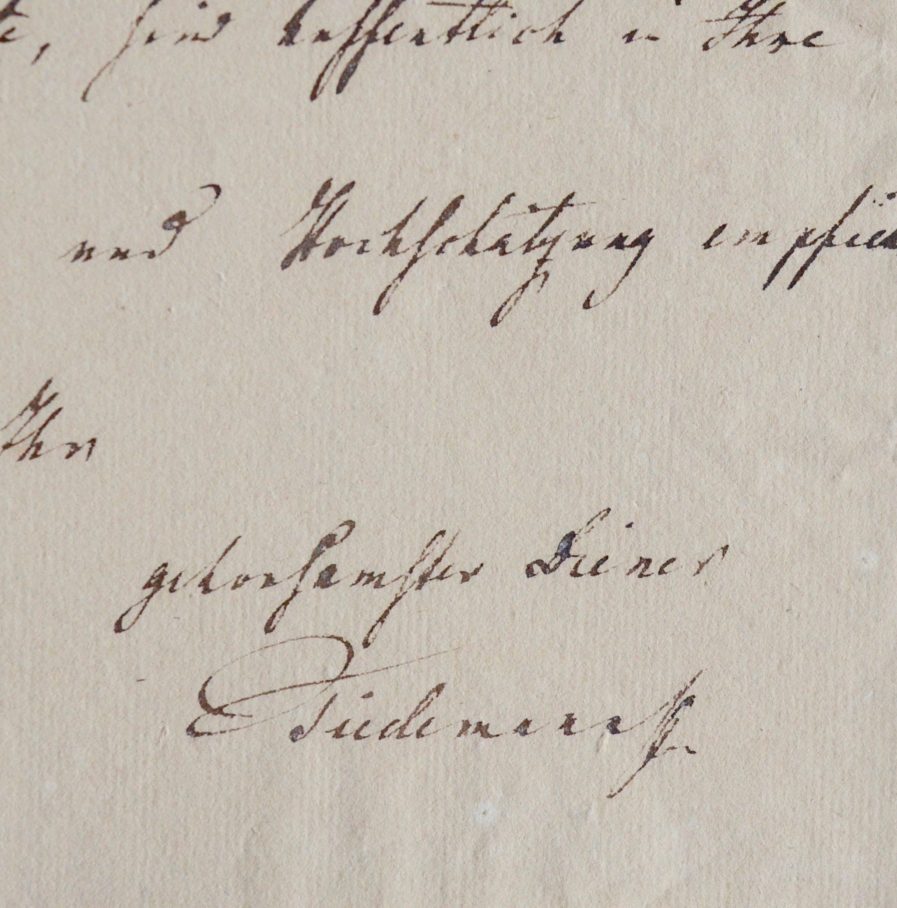 , sind hoffentlich in Ihre
und Hochschätzung empfieh
Ihr
gehorsamster Diener
Tiedemann